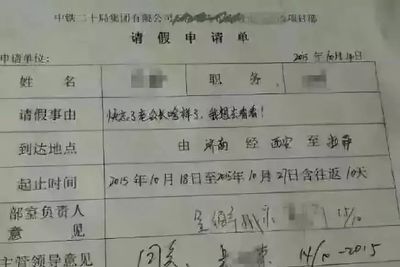 中铁二十局集团有限公司 项目部
请假申请单
申请单位： 2015年10月14日
姓名 职务
请假事由 快忘了老公长啥样了，我想去看看！
到达地点 由 济南 经 西安 至
起止时间 2015年10月18日至2015年10月27日含往返10天
部室负责人
意见 15/10
主管领导意见 同意 14/10-2015